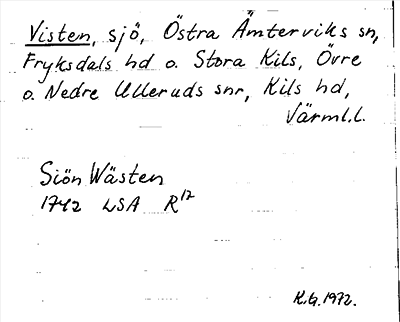 Visten, sjö, Östra Ämterviks sn,
Fryksdals hd o. Stora Kils, Övre
o. Nedre Ulleruds snr, Kils hd,
Värml.l.
Siön Wästen
1742 LSA R12
K.G. 1972.